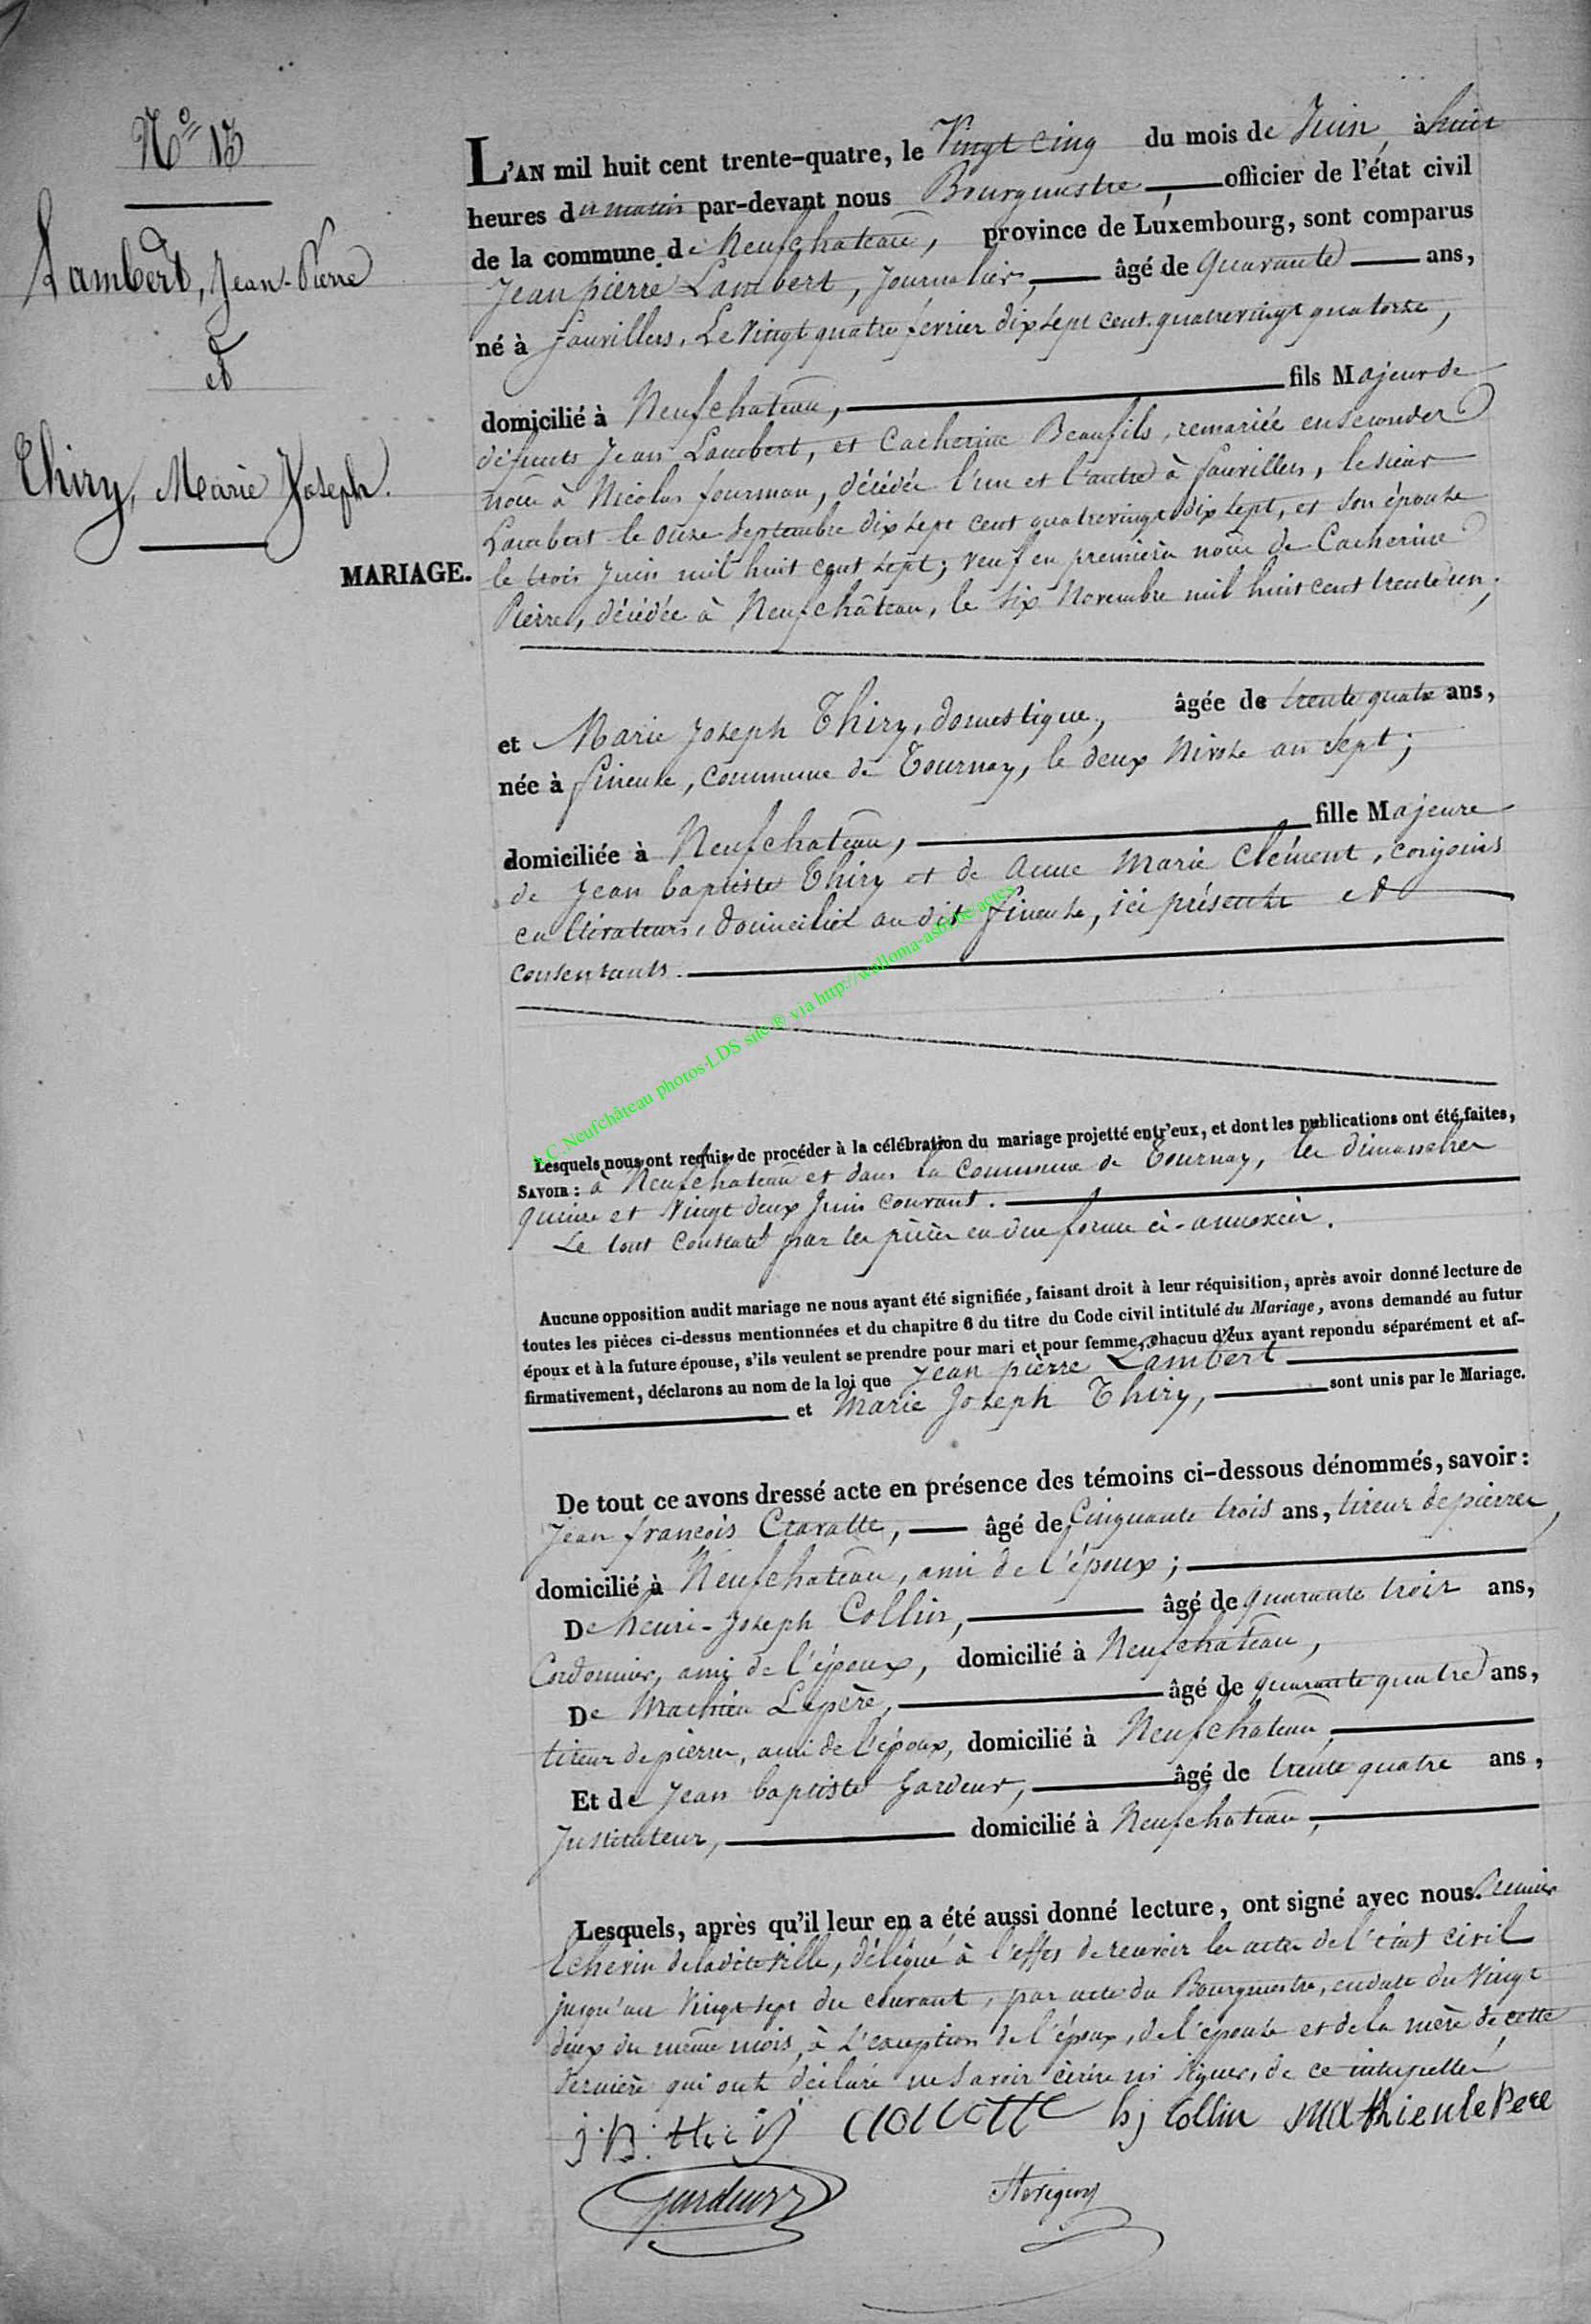 N° 13
Lambert, Jean-Pierre
et
Thiry, Marie Joseph.
MARIAGE.
L'AN mil huit cent trente-quatre, le Vingt cinq du mois de Juin, à huit
heures du matin par-devant nous Bourgmestre, officier de l'état civil
de la commune de Neufchateau, province de Luxembourg, sont comparus
Jean pierre Lambert, Journalier, âgé de Quarante ans,
né à fauvillers, Le Vingt quatre fevrier dix sept cent quatrevingt quatorze,
domicilié à Neufchateau, fils Majeur de
défunts Jean Lambert, et Catherine Beaufils, remariée en secondes
noces à Nicolas fourman, décédés l'un et l'autre à fauvillers, le sieur
Lambert le onze Septembre dix sept cent quatrevingt dix sept, et son épouse
le trois Juin mil huit cent sept; veuf en première noce de Catherine
Pierre, décédée à Neufchâteau, le six Novembre mil huit cent trente un;
et Marie Joseph Thiry, domestique, âgée de trente quatre ans,
née à fineuse, commune de Tournay, le deux Nivose an sept;
domiciliée à Neufchateau, fille Majeure
de Jean baptiste Thiry et de Anne Marie Clément, conjoints
cultivateurs, domiciliés au dit fineuse, ici présents et
consentants.
A.C.Neufchâteau photos-LDS site ® via http://walloma-asbl.be/actes
Lesquels nous ont requis de procéder à la célébration du mariage projetté entr'eux, et dont les publications ont été faites,
SAVOIR : à Neufchateau et dans la Commune de Tournay, les dimanches
quinze et Vingt deux Juin courant.
Le tout constaté par les pièces en due forme ci-annexées.
Aucune opposition audit mariage ne nous ayant été signifiée, faisant droit à leur réquisition, après avoir donné lecture de
toutes les pièces ci-dessus mentionnées et du chapitre 6 du titre du Code civil intitulé du Mariage, avons demandé au futur
époux et à la future épouse, s'ils veulent se prendre pour mari et pour femme, chacuu d'eux ayant repondu séparément et af-
firmativement, déclarons au nom de la loi que Jean pierre Lambert
et Marie Joseph Thiry, sont unis par le Mariage.
De tout ce avons dressé acte en présence des témoins ci-dessous dénommés, savoir :
Jean françois Claratte, âgé de Cinquante trois ans, tireur de pierres,
domicilié à Neufchateau, ami de l'époux;
De henri-Joseph Collin, âgé de quarante trois ans,
Cordonnier, ami de l'époux, domicilié à Neufchateau,
De Mathieu Lepère, âgé de quarante quatre ans,
tireur de pierres, ami de l'époux, domicilié à Neufchateau,
Et de Jean baptiste Gardeur, âgé de trente quatre ans,
Instituteur, domicilié à Neufchateau,
Lesquels, après qu'il leur en a été aussi donné lecture, ont signé avec nous. Premier
Echevin de ladite Ville, délégué à l'effet de recevoir les actes de l'état civil
jusqu'au Vingt sept du courant, par acte du Bourgmestre, en date du Vingt
deux du même mois, à l'exception de l'époux, de l'épouse et de la mère de cette
dernière qui ont déclaré ne savoir écrire ni signer, de ce interpellés
hj Collin Mathieu le Pere